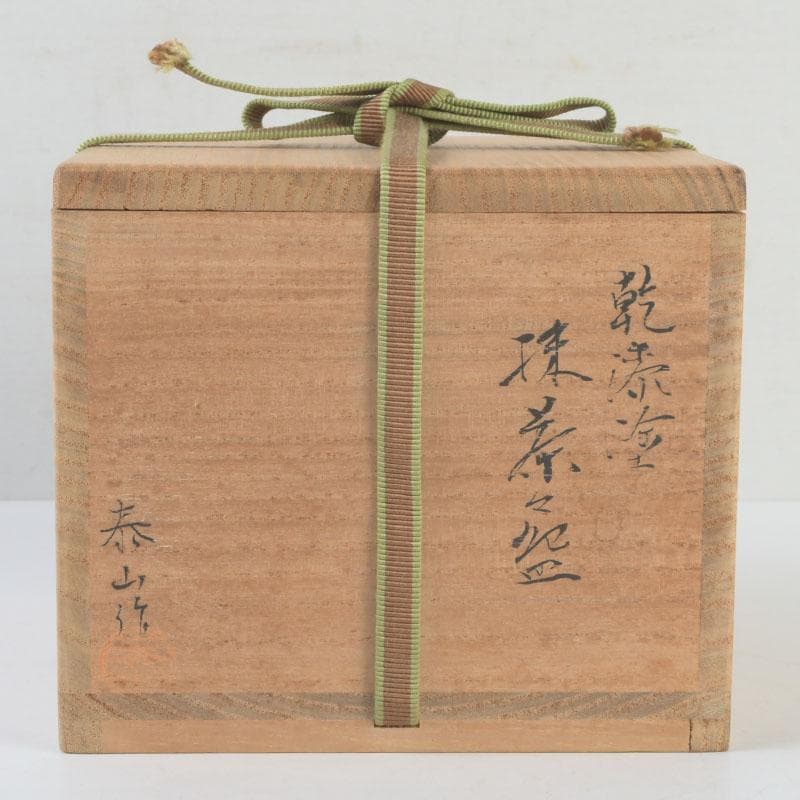 乾漆塗
抹茶々盌
泰山作